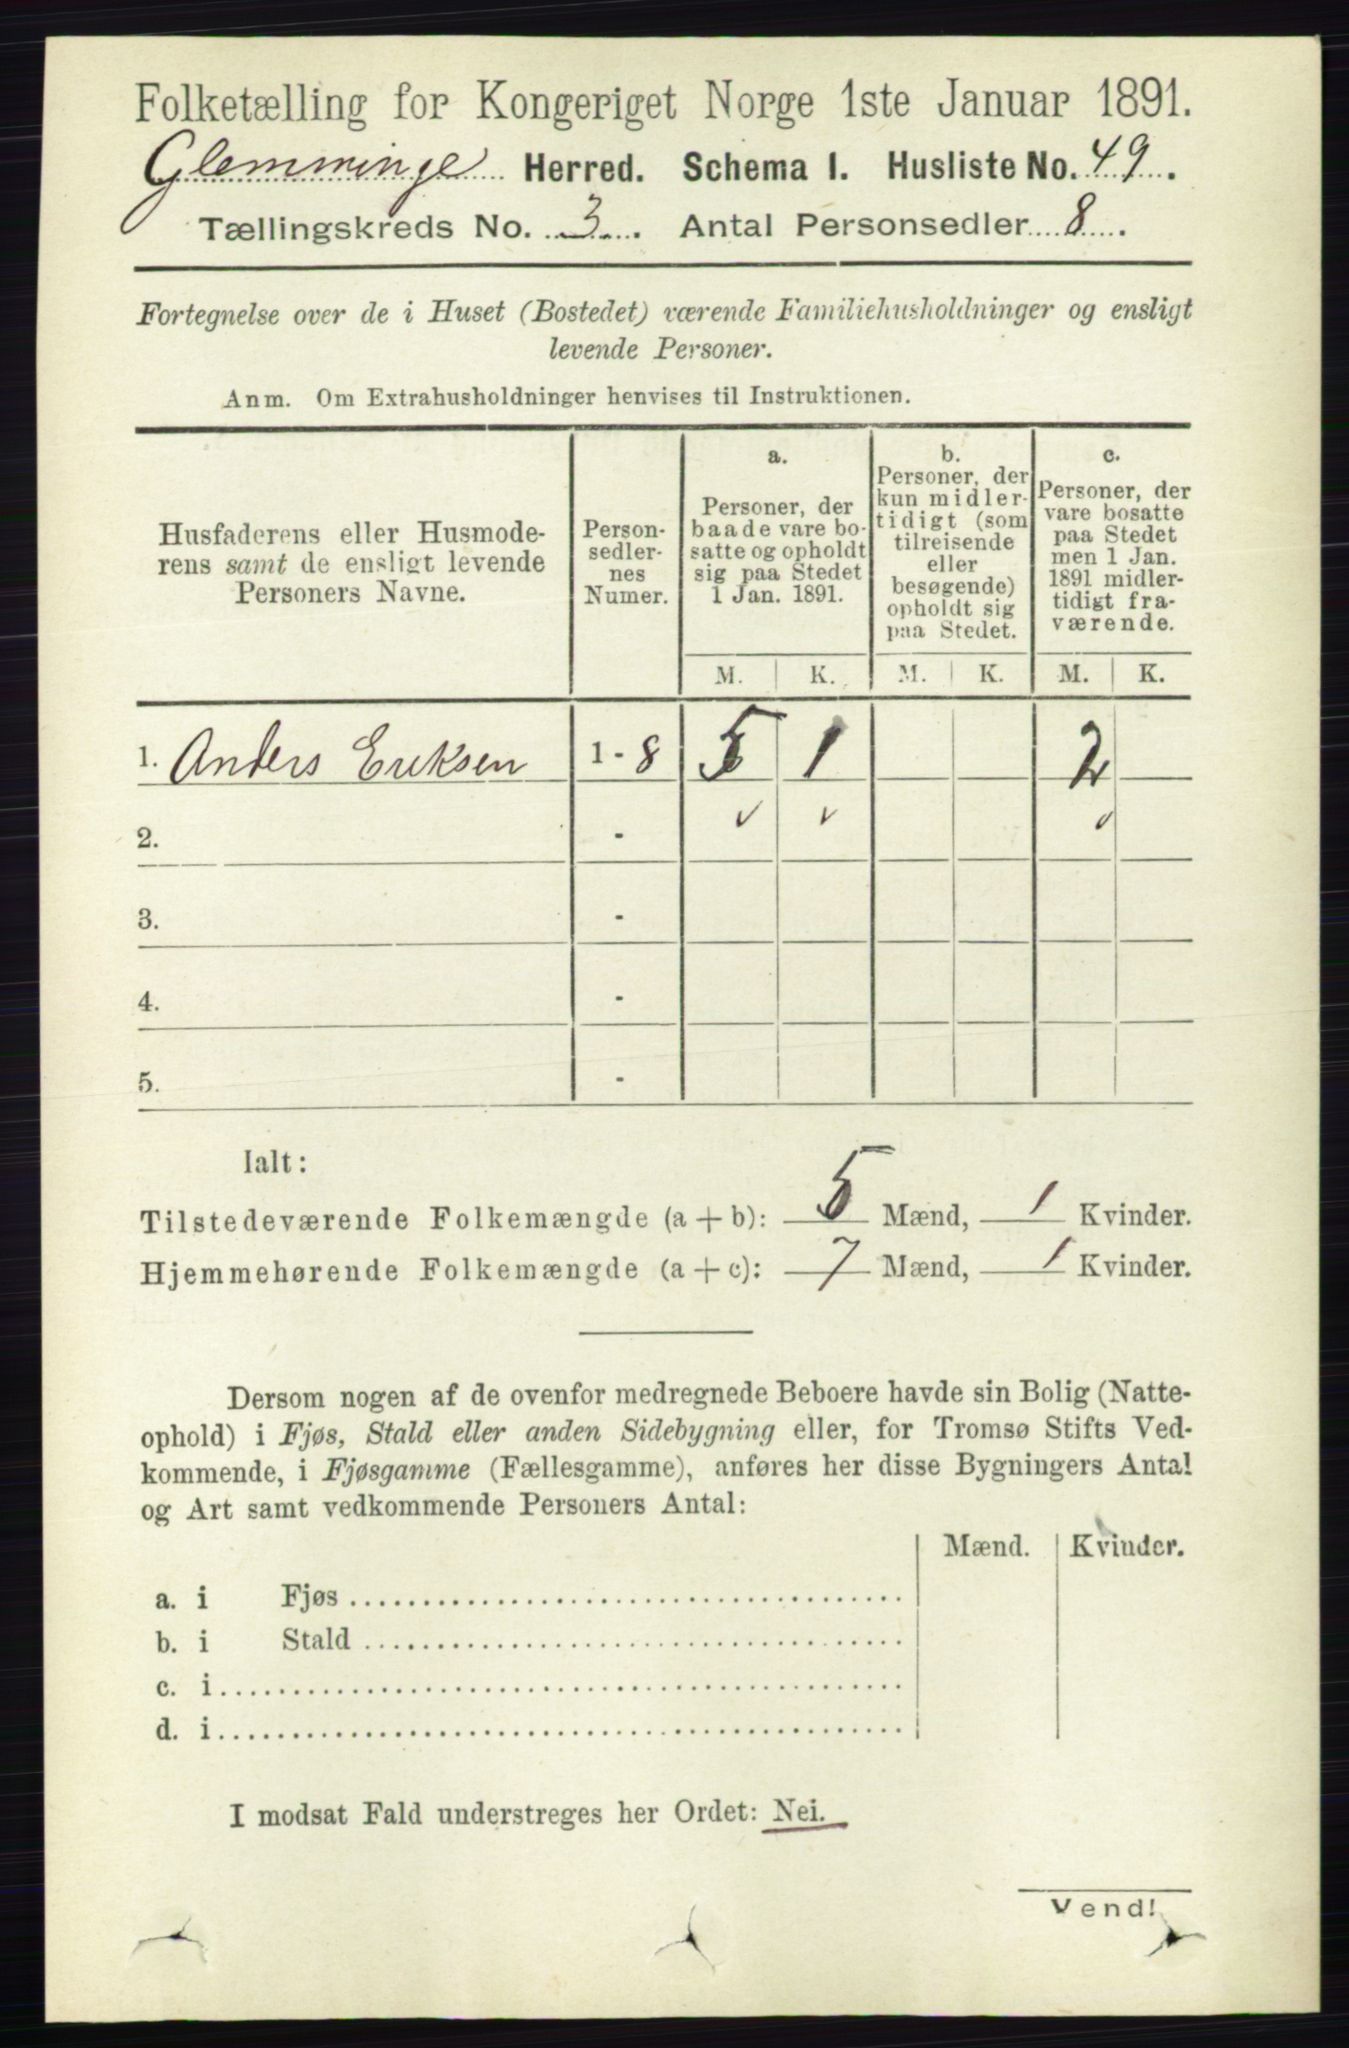 Folketælling for Kongeriget Norge 1ste Januar 1891.
Glemminge Herred. Schema I. Husliste No. 49.
Tællingskreds No. 3. Antal Personsedler 8.
Fortegnelse over de i Huset (Bostedet) værende Familiehusholdninger og ensligt
levende Personer.
Anm. Om Extrahusholdninger henvises til Instruktionen.
Husfaderens eller Husmode-
rens samt de ensligt levende
Personers Navne.
Person-
sedler-
nes
Numer.
a.
Personer, der
baade vare bo-
satte og opholdt
sig paa Stedet
1 Jan. 1891.
b.
Personer, der
kun midler-
tidigt (som
tilreisende
eller
besøgende)
opholdt sig
paa Stedet.
c.
Personer, der
vare bosatte
paa Stedet
men 1 Jan.
1891 midler-
tidigt fra-
værende.
M. K. M. K. M. K.
1. Anders Eriksen 1 - 8 5 1 2
2. - ✓ ✓ ✓
3. -
4. -
5. -
Ialt:
Tilstedeværende Folkemængde (a + b): 5 Mænd, 1 Kvinder.
Hjemmehørende Folkemængde (a + c): 7 Mænd, 1 Kvinder.
Dersom nogen af de ovenfor medregnede Beboere havde sin Bolig (Natte-
ophold) i Fjøs, Stald eller anden Sidebygning eller, for Tromsø Stifts Ved-
kommende, i Fjøsgamme (Fællesgamme), anføres her disse Bygningers Antal
og Art samt vedkommende Personers Antal:
Mænd. Kvinder.
a. i Fjøs
b. i Stald
c. i
d. i
I modsat Fald understreges her Ordet: Nei.
Vend!